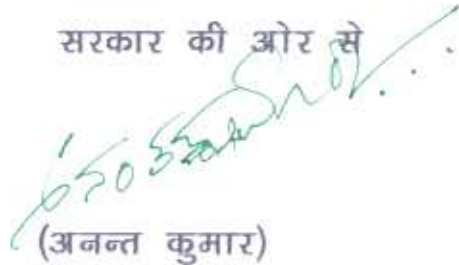 सरकार की ओर से
(अनन्त कुमार)